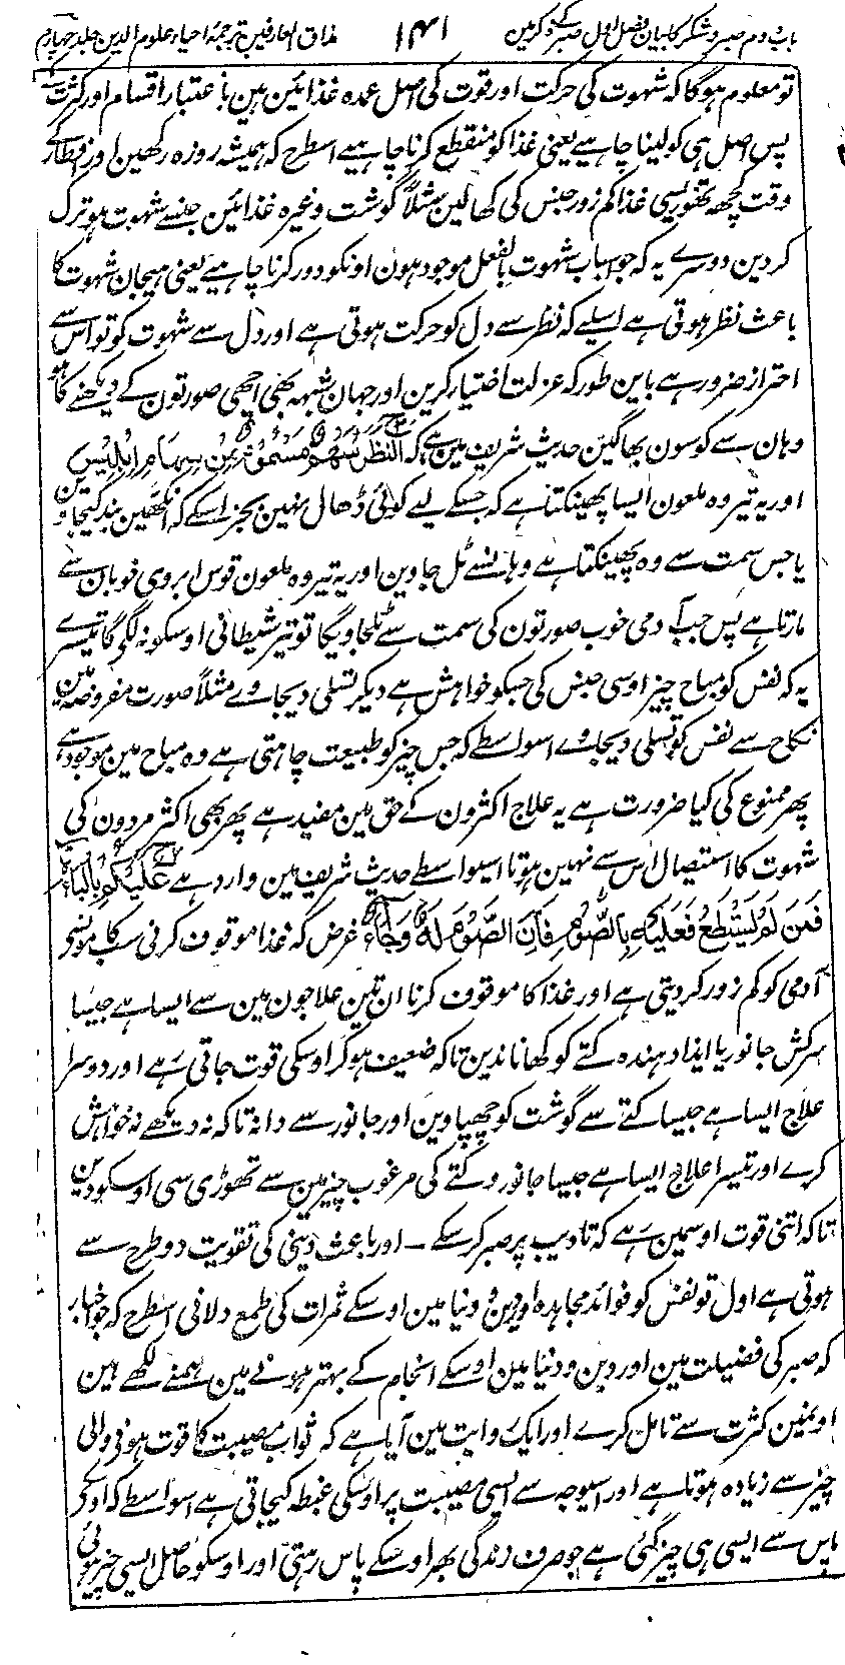 باب دوم صبر و شکر کا بیان فصل اول صبر کے ذکر مین ۱۴۱ مذاق العارفین ترجمہ احیاء علوم الدین جلد چہارم
تو معلوم ہوگا کہ شہوت کی حرکت اور قوت کی اصل عمدہ غذائین ہین باعتبار اقسام اور کثرت کے
پس اصل ہی کو لینا چاہیے یعنی غذا کو منقطع کرنا چاہیے اسطرح کہ ہمیشہ روزہ رکھین اور افطار کے
وقت کچھ تھوڑیسی غذا کم زور جنس کی کھا لین مثلاً گوشت وغیرہ غذائین جنسے شہوت ہو ترک
کر دین دوسرے یہ کہ جو اسباب شہوت بالفعل موجود ہون اونکو دور کرنا چاہیے یعنی ہیجان شہوت کا
باعث نظر ہوتی ہے اسلیے کہ نظر سے دل کو حرکت ہوتی ہے اور دل سے شہوت کو تو اس سے
احتراز ضرور ہے باین طور کہ عزلت اختیار کرین اور جہان شبہہ بھی اچھی صورتون کے دیکھنے کا ہو
وہان سے کوسون بھاگین حدیث شریف مین ہے کہ النَّظَرُ سَهْمٌ مَسْمُوْمٌ مِنْ سِهَامِ اِبْلِیْسَ
اور یہ تیر وہ ملعون ایسا پھینکتا ہے کہ جسکے لیے کوئی ڈھال نہین بجز اسکے کہ آنکھین بند کیجاوین
یا جس سمت سے وہ پھینکتا ہے وہانسے ٹل جاوین اور یہ تیر وہ ملعون قوس ابروی خوبان سے
مارتا ہے پس جب آدمی خوب صورتون کی سمت سے ٹلجاویگا تو تیر شیطانی اوسکو نہ لگیگا تیسرے
یہ کہ نفس کو مباح چیز اوسی جنس کی جسکو خواہش ہے دیکر تسلی دیجاوے مثلاً صورت مفروضہ مین
نکاح سے نفس کو تسلی دیجاوے اسواسطے کہ جس چیز کو طبیعت چاہتی ہے وہ مباح مین موجود ہے
پھر ممنوع کی کیا ضرورت ہے یہ علاج اکثرون کے حق مین مفید ہے پھر بھی اکثر مردون کی
شہوت کا استیصال اس سے نہین ہوتا اسیواسطے حدیث شریف مین وارد ہے عَلَیْکُمْ بِالْبَاءَةِ
فَمَنْ لَمْ یَسْتَطِعْ فَعَلَیْهِ بِالصَّوْمِ فَاِنَّ الصَّوْمَ لَهٗ وِجَاءٌ غرض کہ غذا موقوف کرنی سب کامونسے
آدمی کو کم زور کر دیتی ہے اور غذا کا موقوف کرنا ان تین علاجون مین سے ایسا ہے جیسا
سرکش جانور یا ایذا دہندہ کتے کو کھانا ندین تاکہ ضعیف ہو کر اوسکی قوت جاتی رہے اور دوسرا
علاج ایسا ہے جیسا کتے سے گوشت کو چھپاوین اور جانور سے دانہ تاکہ نہ دیکھے نہ خواہش
کرے اور تیسرا علاج ایسا ہے جیسا جانور و کتے کی مرغوب چیز مین سے تھوڑی سی اوسکو دین
تاکہ اتنی قوت اوسمین رہے کہ تادیب پر صبر کر سکے – اور باعث دینی کی تقویت دو طرح سے
ہوتی ہے اول تو نفس کو فوائد مجاہدہ اور دین و دنیا مین اوسکے ثمرات کی طمع دلانی اسطرح کہ جو اخبار
کہ صبر کی فضیلت مین اور دین و دنیا مین اوسکے انجام کے بہتر ہونے مین ہمنے لکھے ہین
اونمین کثرت سے تامل کرے اور ایک روایت مین آیا ہے کہ ثواب مصیبت کا فوت ہونے والی
چیز سے زیادہ ہوتا ہے اور اسیوجہ سے ایسی مصیبت پر اوسکی غبطہ کیجاتی ہے اسواسطے کہ اوسکے
پاس سے ایسی ہی چیز گئی ہے جو صرف زندگی بھر اوسکے پاس رہتی اور اوسکو حاصل ایسی چیز ہوئی